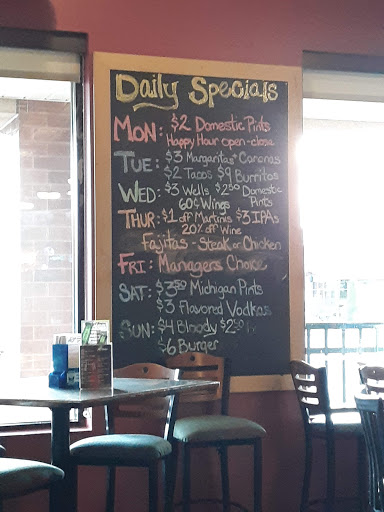 Daily Specials
MON: $2 Domestic Pints
Happy Hour open-close
TUE: $3 Margaritas* Coronas
$2 Tacos $9 Burritos
WED: $3 Wells $2.50 Domestic Pints
60¢ Wings
THUR: $1 off Martinis $3 IPAs
20% off Wine
Fajitas - Steak or Chicken
FRI: Managers Choice
SAT: $3.50 Michigan Pints
$3 Flavored Vodkas
SUN: $4 Bloody $2.50
$6 Burger